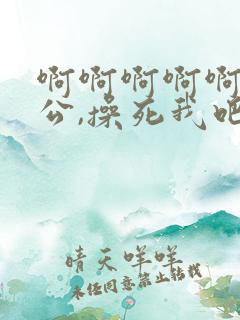 啊啊啊啊啊
公,操死我吧
晴天咩咩
未经同意禁止转载